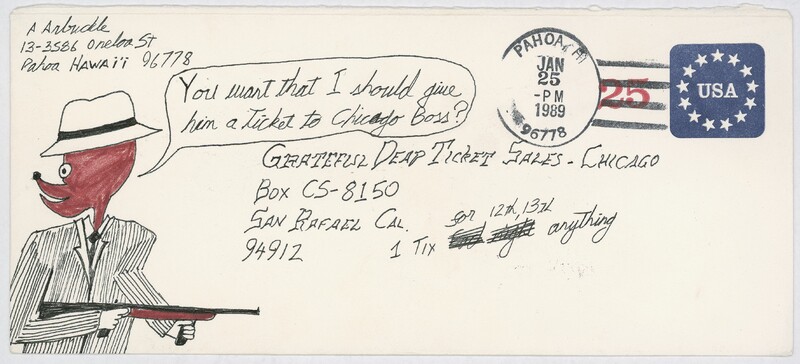 A Arbuckle
13-3586 Oneloa St
Pahoa HAWAI'I 96778
You want that I should give
him a Ticket to Chicago Boss?
PAHOA, HI
JAN
25
-PM
1989
96778
25
USA
GRATEFUL DEAD TICKET SALES - CHICAGO
BOX CS-8150
SAN RAFAEL CAL.
94912
1 TIX for 12th, 13th anything